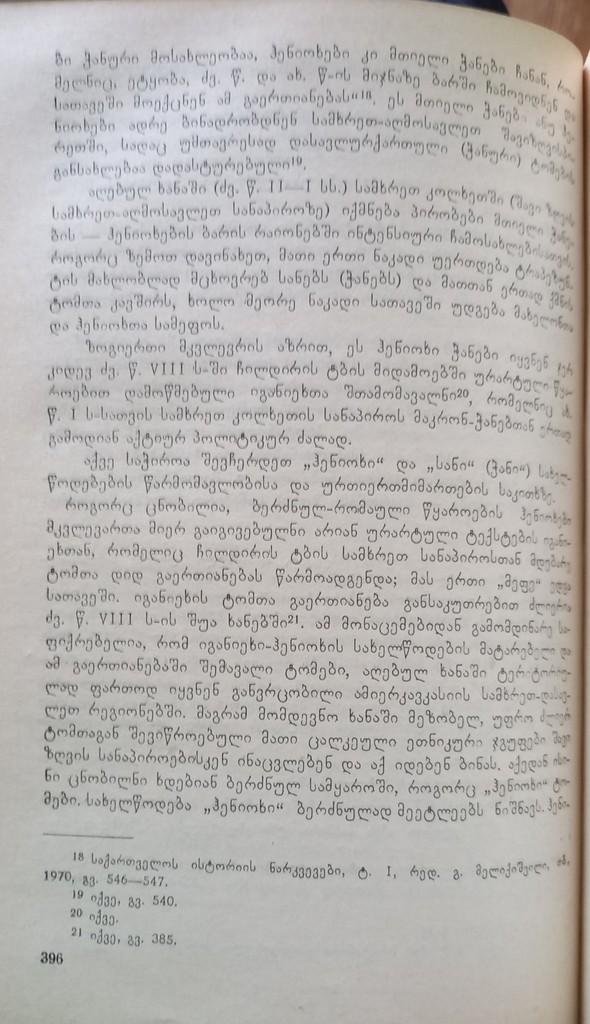 ბი ჭანური მოსახლეობაა, ჰენიოხები კი მთიელი ჭანები ჩანან, რო-
მელნიც, ეტყობა, ძვ. წ. და ახ. წ-ის მიჯნაზე ბარში ჩამოვიდნენ და
სათავეში მოექცნენ ამ გაერთიანებას“18. ეს მთიელი ჭანები ანუ ჰე-
ნიოხები ადრე ბინადრობდნენ სამხრეთ-აღმოსავლეთ შავიზღვისპი-
რეთში, სადაც უმთავრესად დასავლურქართული (ჭანური) ტომების
განსახლებაა დადასტურებული19.
აღებულ ხანაში (ძვ. წ. II—I სს.) სამხრეთ კოლხეთში (შავი ზღვის
სამხრეთ-აღმოსავლეთ სანაპიროზე) იქმნება პირობები მთიელი ჭანე-
ბის — ჰენიოხების ბარის რაიონებში ინტენსიური ჩამოსახლებისათვის.
როგორც ზემოთ დავინახეთ, მათი ერთი ნაკადი უერთდება ტრაპეზუნ-
ტის მახლობლად მცხოვრებ სანებს (ჭანებს) და მათთან ერთად ქმნის
ტომთა კავშირს, ხოლო მეორე ნაკადი სათავეში უდგება მახელონთა
და ჰენიოხთა სამეფოს.
ზოგიერთი მკვლევრის აზრით, ეს ჰენიოხი ჭანები იყვნენ ჯერ
კიდევ ძვ. წ. VIII ს-ში ჩილდირის ტბის მიდამოებში ურარტული წყა-
როებით დამოწმებული იგანიეხთა შთამომავალნი20, რომელნიც ახ.
წ. I ს-სათვის სამხრეთ კოლხეთის სანაპიროს მაკრონ-ჭანებთან ერთად
გამოდიან აქტიურ პოლიტიკურ ძალად.
აქვე საჭიროა შევჩერდეთ „ჰენიოხი“ და „სანი“ (ჭანი“) სახელ-
წოდებების წარმომავლობისა და ურთიერთმიმართების საკითხზე.
როგორც ცნობილია, ბერძნულ-რომაული წყაროების ჰენიოხები
მკვლევართა მიერ გაიგივებულნი არიან ურარტული ტექსტების იგანი-
ეხთან, რომელიც ჩილდირის ტბის სამხრეთ სანაპიროსთან მდებარე
ტომთა დიდ გაერთიანებას წარმოადგენდა; მას ერთი „მეფე“ ედგა
სათავეში. იგანიეხის ტომთა გაერთიანება განსაკუთრებით ძლიერია
ძვ. წ. VIII ს-ის შუა ხანებში21. ამ მონაცემებიდან გამომდინარე სა-
ფიქრებელია, რომ იგანიეხი-ჰენიოხის სახელწოდების მატარებელი და
ამ გაერთიანებაში შემავალი ტომები, აღებულ ხანაში ტერიტორიუ-
ლად ფართოდ იყვნენ განვრცობილი ამიერკავკასიის სამხრეთ-დასავ-
ლეთ რეგიონებში. მაგრამ მომდევნო ხანაში მეზობელ, უფრო ძლიერ
ტომთაგან შევიწროებული მათი ცალკეული ეთნიკური ჯგუფები შავი
ზღვის სანაპიროებისკენ ინაცვლებენ და აქ იდებენ ბინას. აქედან ისი-
ნი ცნობილნი ხდებიან ბერძნულ სამყაროში, როგორც „ჰენიოხი“ ტო-
მები. სახელწოდება „ჰენიოხი“ ბერძნულად მეეტლეებს ნიშნავს. ჰენი-
18 საქართველოს ისტორიის ნარკვევები, ტ. I, რედ. გ. მელიქიშვილი, თბ.
1970, გვ. 546—547.
19 იქვე, გვ. 540.
20 იქვე.
21 იქვე, გვ. 385.
396